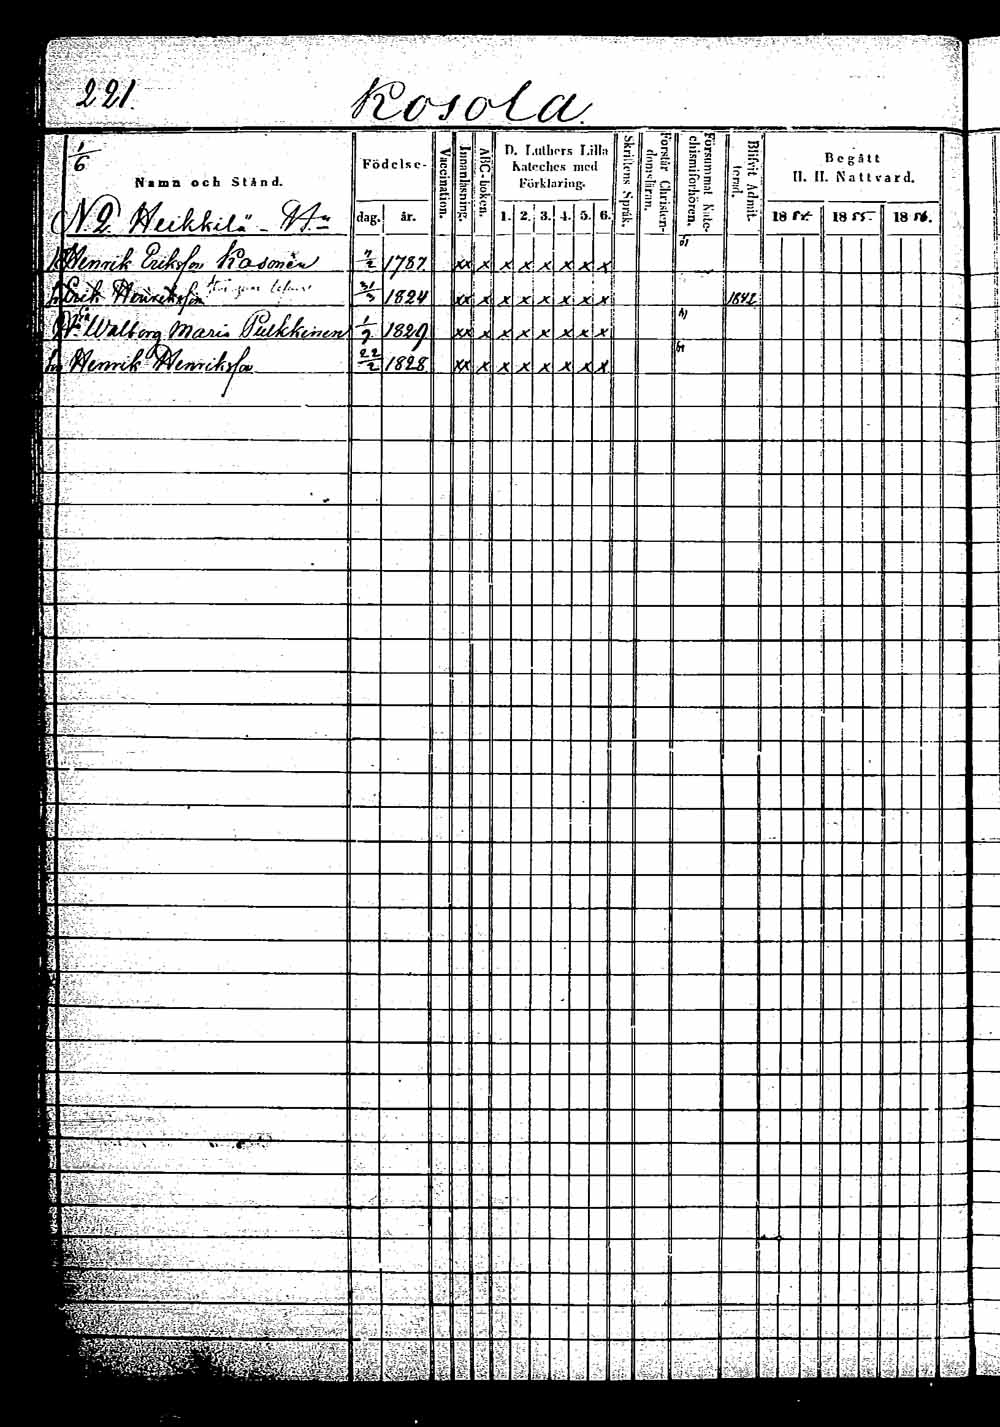 221.
Kosola.
1/6
Namn och Stånd.
Födelse-
dag. år.
Vaccination.
Innanläsning.
ABC-boken.
D. Luthers Lilla
Kateches med
Förklaring.
1. 2. 3. 4. 5. 6.
Skriftens Språk.
Förstår Christen-
domsläran.
Försummat Kate-
chismiförhören.
Blifvit Admit-
terad.
Begått
H. H. Nattvard.
1854. 1855. 1856.
N. 2. Heikkilä
Henrik Eriksson Kasonen 7/2 1787. xx x x x x x x x
Erik Henriksson 31/3 1824 xx x x x x x x x 1842
Walborg Maria Pulkkinen 1/9 1829 xx x x x x x x x
Henrik Henriksson 22/2 1828 xx x x x x x x x